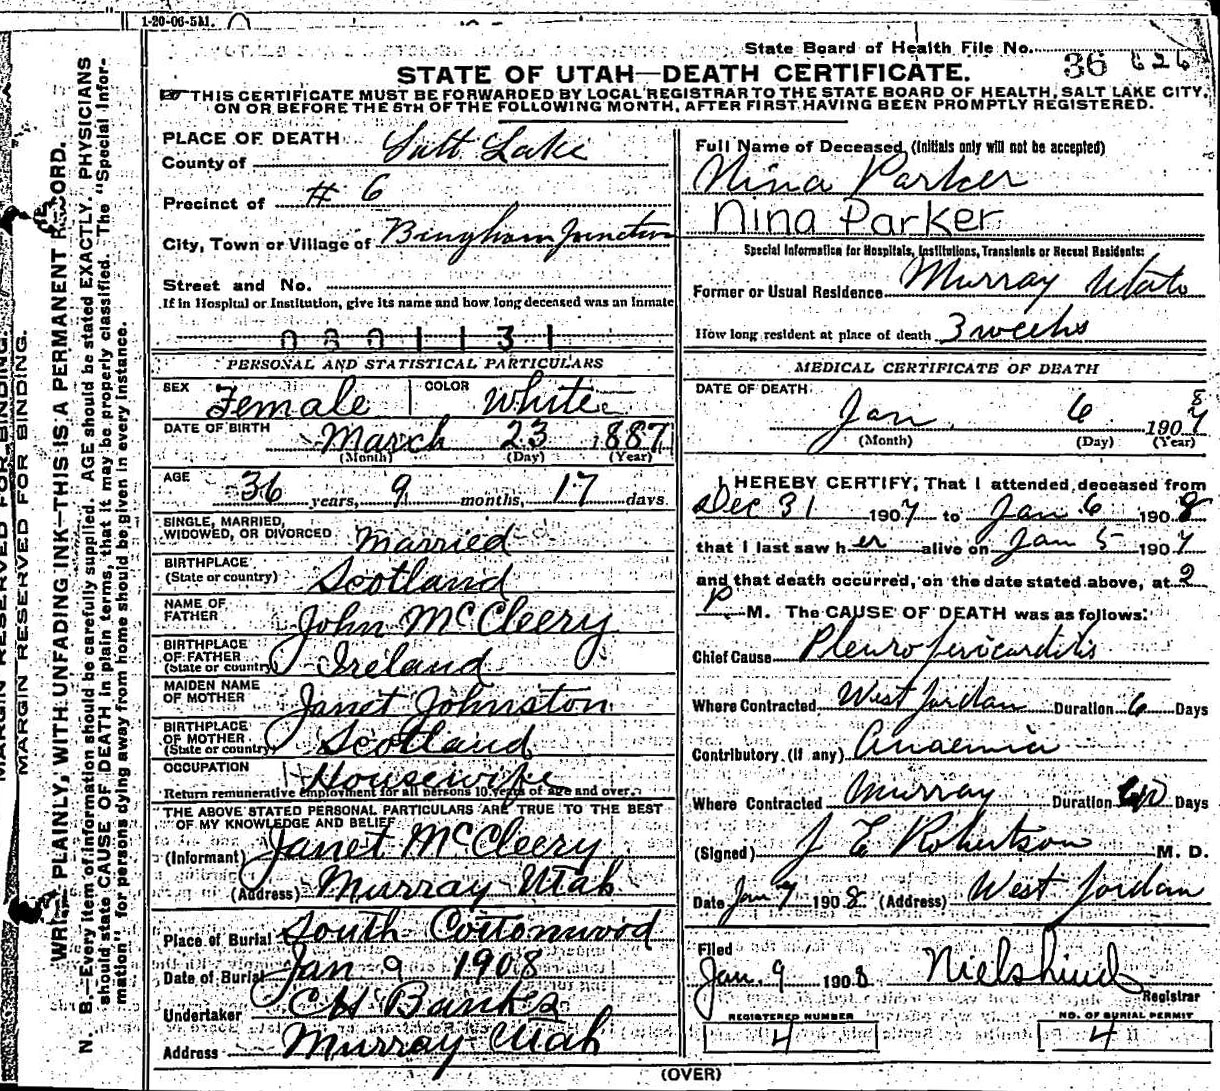 1-20-06-5M.
State Board of Health File No. 36 626
STATE OF UTAH—DEATH CERTIFICATE.
THIS CERTIFICATE MUST BE FORWARDED BY LOCAL REGISTRAR TO THE STATE BOARD OF HEALTH, SALT LAKE CITY,
ON OR BEFORE THE 5TH OF THE FOLLOWING MONTH, AFTER FIRST HAVING BEEN PROMPTLY REGISTERED.
MARGIN RESERVED FOR BINDING.
MARGIN RESERVED FOR BINDING.
PLAINLY, WITH UNFADING INK—THIS IS A PERMANENT RECORD.
N. B.—Every item of information should be carefully supplied. AGE should be stated EXACTLY. PHYSICIANS
should state CAUSE OF DEATH in plain terms, that it may be properly classified. The "Special Infor-
mation" for persons dying away from home should be given in every instance.
PLACE OF DEATH
County of Salt Lake
Precinct of # 6
City, Town or Village of Bingham Junction
Street and No.
If in Hospital or Institution, give its name and how long deceased was an inmate
0601131
PERSONAL AND STATISTICAL PARTICULARS
SEX Female COLOR White
DATE OF BIRTH March 23 1887
(Month) (Day) (Year)
AGE 36 years, 9 months, 17 days.
SINGLE, MARRIED,
WIDOWED, OR DIVORCED Married
BIRTHPLACE
(State or country) Scotland
NAME OF
FATHER John McCleery
BIRTHPLACE
OF FATHER
(State or country) Ireland
MAIDEN NAME
OF MOTHER Janet Johnston
BIRTHPLACE
OF MOTHER
(State or country) Scotland
OCCUPATION Housewife
Return remunerative employment for all persons 10 years of age and over.
THE ABOVE STATED PERSONAL PARTICULARS ARE TRUE TO THE BEST
OF MY KNOWLEDGE AND BELIEF
(Informant) Janet McCleery
(Address) Murray Utah
Place of Burial South Cottonwood
Date of Burial Jan 9 1908
Undertaker CH Bankes
Address Murray Utah
Full Name of Deceased (Initials only will not be accepted)
Nina Parker
Nina Parker
Special Information for Hospitals, Institutions, Transients or Recent Residents:
Former or Usual Residence Murray Utah
How long resident at place of death 3 weeks
MEDICAL CERTIFICATE OF DEATH
DATE OF DEATH
8
Jan. 6 1907
(Month) (Day) (Year)
I HEREBY CERTIFY, That I attended deceased from
Dec 31 1907 to Jan 6 1908
that I last saw her alive on Jan 5 1907
and that death occurred, on the date stated above, at 2
P M. The CAUSE OF DEATH was as follows:
Chief Cause Pleuro pericarditis
Where Contracted West Jordan Duration 6 Days
Contributory (if any) Anaemia
Where Contracted Murray Duration Days
(Signed) J E Robertson M. D.
Date Jan 7 1908 (Address) West Jordan
Filed
Jan. 9 1908 Niels Lind
Registrar
REGISTERED NUMBER NO. OF BURIAL PERMIT
4 4
(OVER)